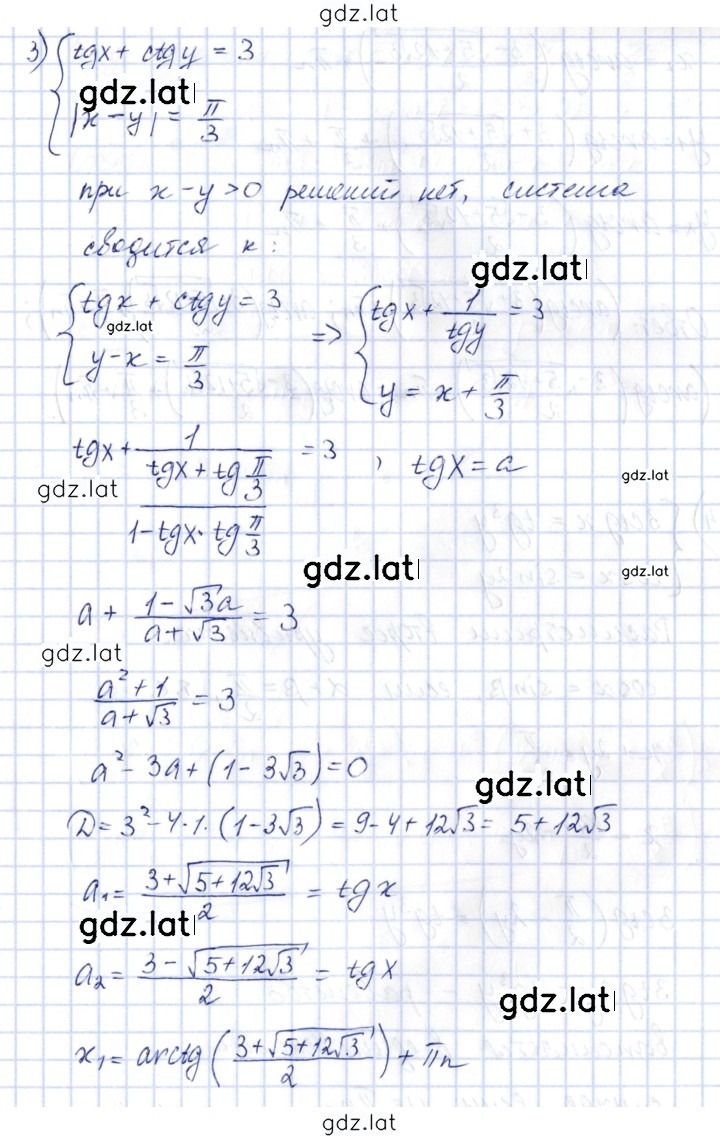 gdz.lat
3) { tgx + ctgy = 3
gdz.lat
|x - y| = π/3
при x - y > 0 решений нет, система
сводится к:
gdz.lat
{ tgx + ctgy = 3 => { tgx + 1/tgy = 3
gdz.lat
y - x = π/3 y = x + π/3
tgx + 1/((tgx + tg π/3)/(1 - tgx · tg π/3)) = 3, tgx = a
gdz.lat
gdz.lat
gdz.lat
gdz.lat
a + (1 - √3a)/(a + √3) = 3
gdz.lat
(a² + 1)/(a + √3) = 3
a² - 3a + (1 - 3√3) = 0
gdz.lat
D = 3² - 4·1·(1 - 3√3) = 9 - 4 + 12√3 = 5 + 12√3
a₁ = (3 + √(5 + 12√3))/2 = tgx
gdz.lat
a₂ = (3 - √(5 + 12√3))/2 = tgx
gdz.lat
x₁ = arctg((3 + √(5 + 12√3))/2) + πn
gdz.lat